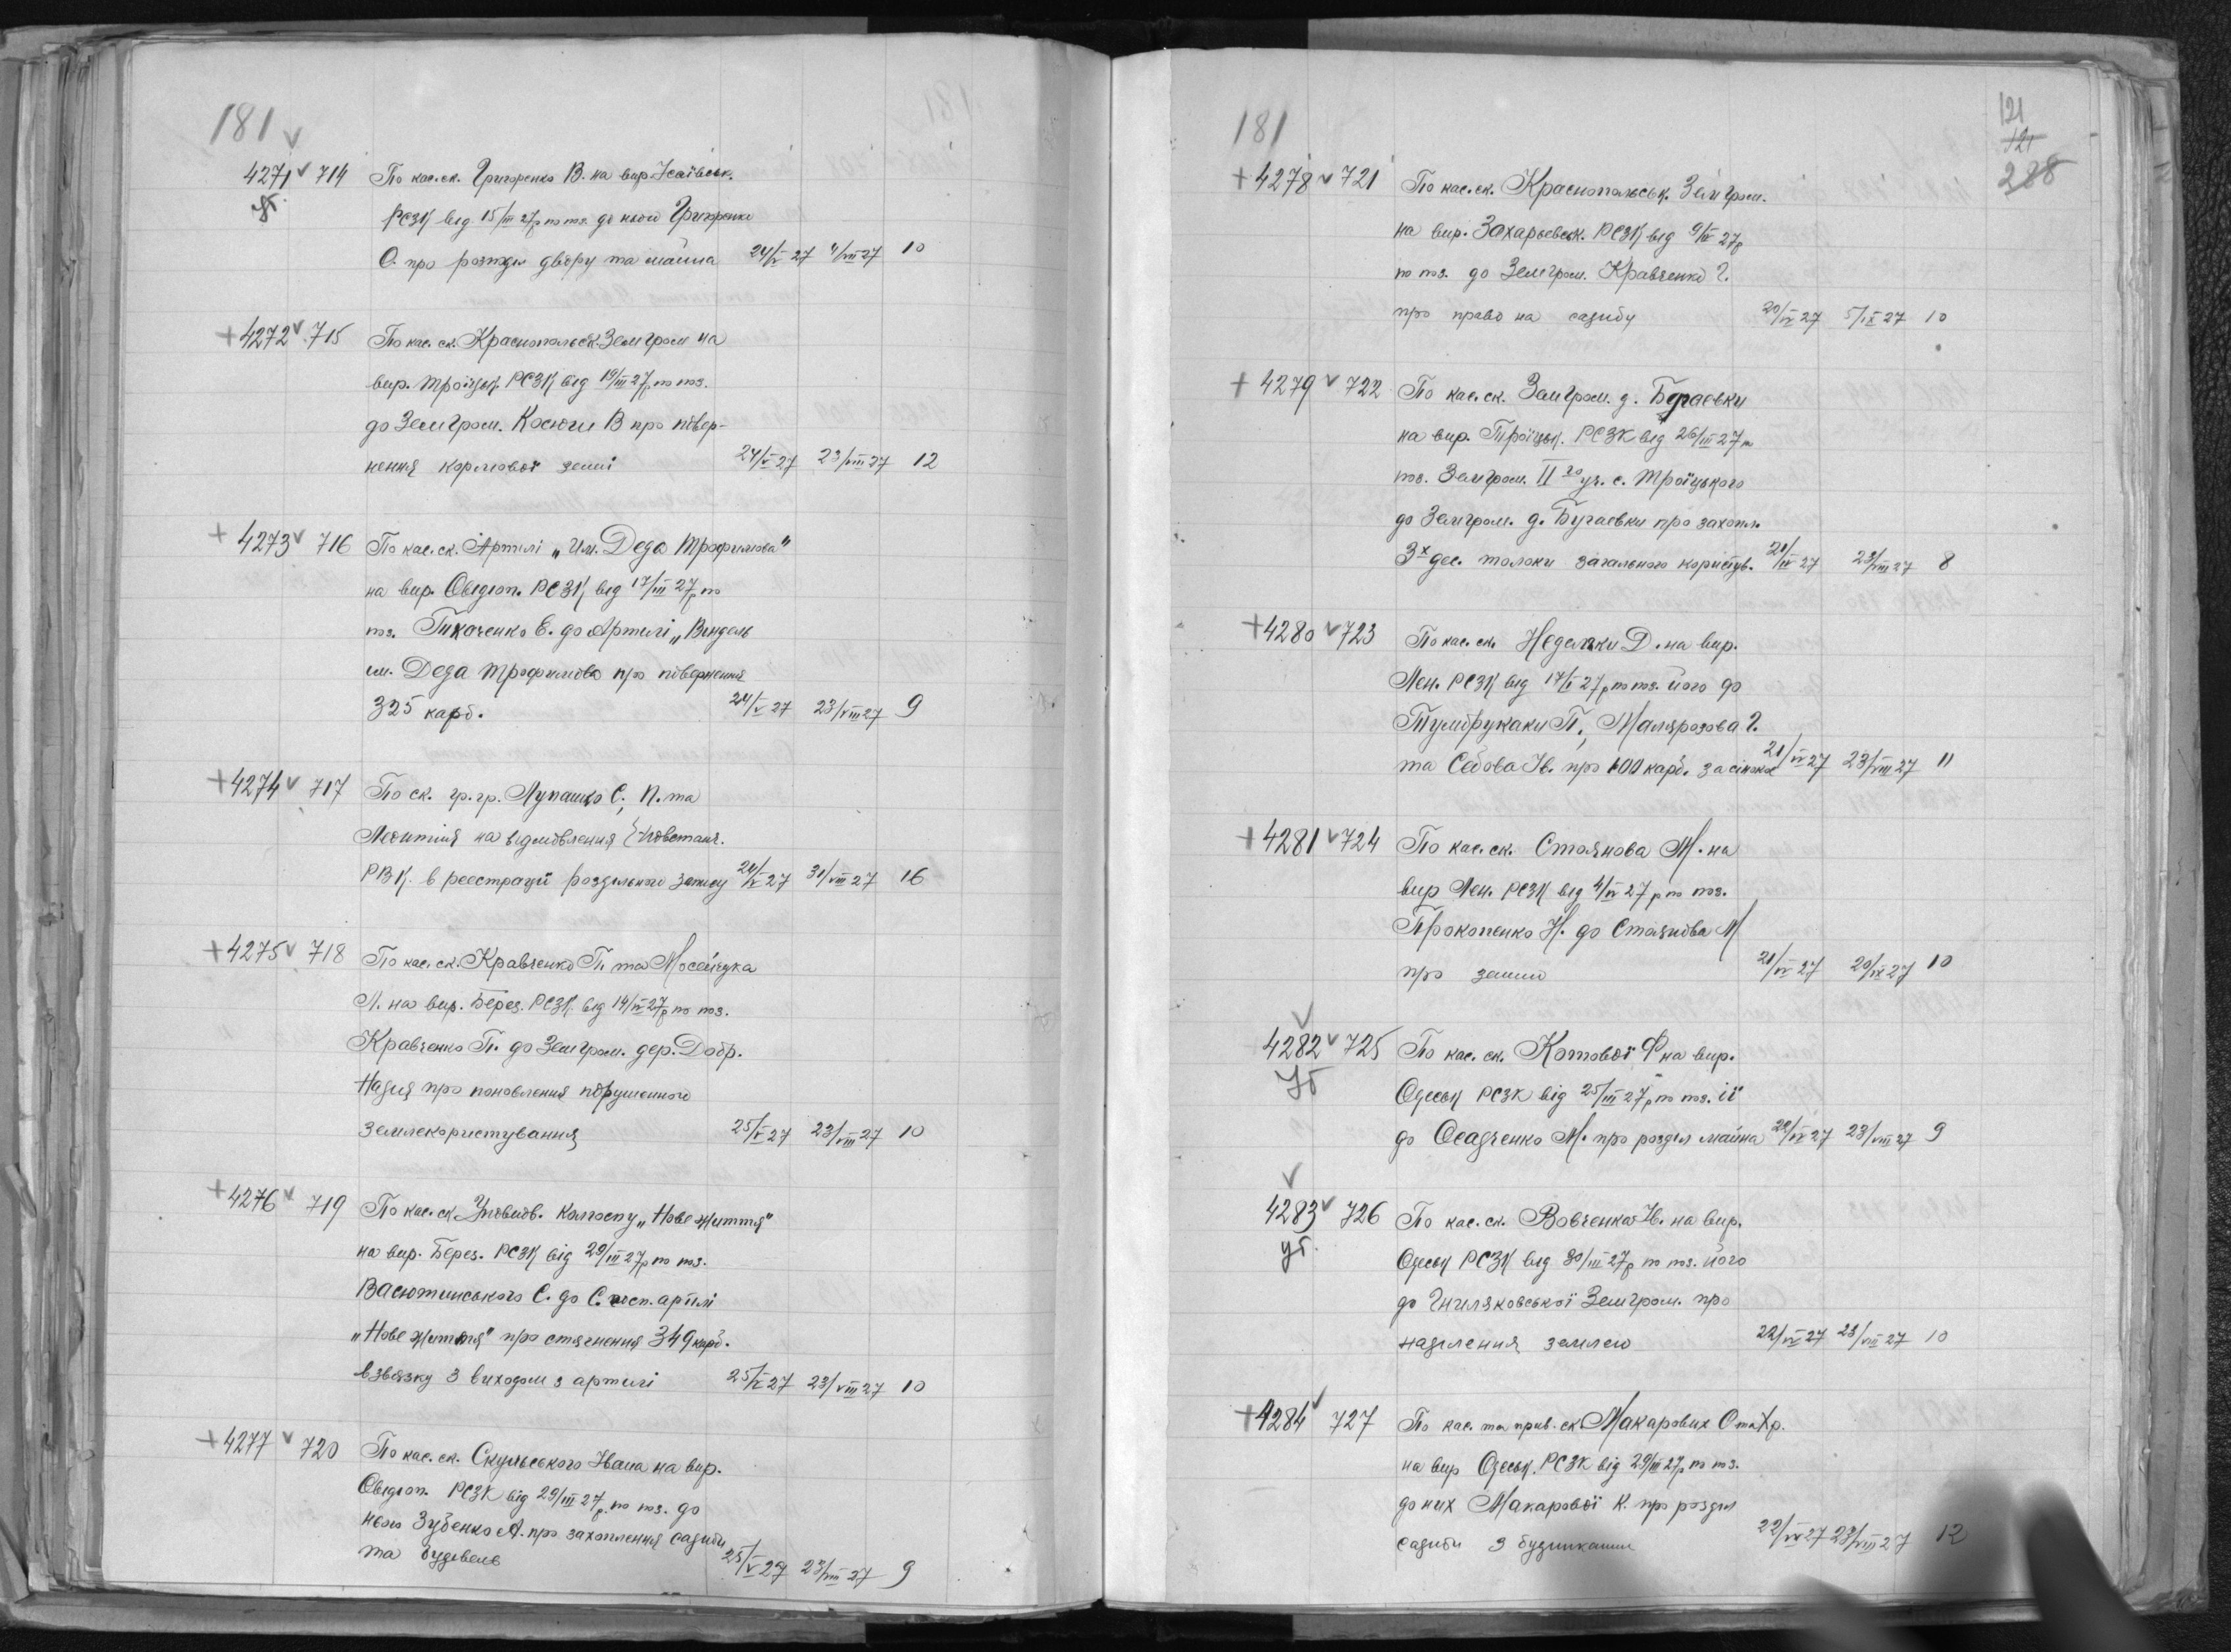 181
4271 714 По кас. ск. Григоренко В. на вир. Ісаївськ.
уб. РСЗК від 15/III 27р по поз. до нього Григоренко
О. про розподіл двору та майна 24/V 27 4/VIII 27 10
+ 4272 715 По кас. ск. Краснопольськ. Земгром на
вир. Троїцьк. РСЗК від 19/III 27р по поз.
доЗемгром. Косюги В про повер-
нення кормової землі 24/V 27 23/VIII 27 12
+ 4273 716 По кас. ск. Артілі „Им. Деда Трофимова"
на вир. Овідіоп. РСЗК від 17/III 27р по
поз. Тихоченко Е. до Артілі „
им. Деда Трофимова про повернення
325 карб. 24/V 27 23/VIII 27 9
+ 4274 717 По ск. гр. гр. Лупашко С., П. та
Леонтія на відмовлення
РВК. в реєстрації роздільного запису 24/V 27 31/VIII 27 16
+ 4275 718 По кас. ск. Кравченко П. та Мосейчука
Л. на вир. Берез. РСЗК від 14/IV 27р по поз.
Кравченко П. до Земгром. дер. Добр.
Надія про поновлення порушенного
землекористування 25/V 27 23/VIII 27 10
+ 4276 719 По кас. ск. Уповнов. колгоспу „Нове життя"
на вир. Берез. РСЗК від 29/III 27р по поз.
Васютинського С. до С. госп. артілі
„Нове життя" про стягнення 349 карб.
взвязку з виходом з артилі 25/V 27 23/VIII 27 10
+ 4277 720 По кас. ск. Скульського Івана на вир.
Овідіоп. РСЗК від 29/III 27р. по поз. до
нього Зубенко А. про захоплення садиби
та будівель 25/V 27 23/VIII 27 9
181
121
121
288
+ 4278 721 По кас. ск. Краснопольськ. Земгром.
на вир. Захарьевськ. РСЗК від 9/IV 27р
по поз. до Земгром. Кравченко Г.
про право на садибу 20/IV 27 5/IX 27 10
+ 4279 722 По кас. ск. Земгром. д. Бугаевки
на вир. Троїцьк. РСЗК від 26/III 27 п
поз. Земгром. II го уч. с. Троїцького
до Земгром. д. Бугаевки про захопл.
3х дес. толоки загального користув. 21/IV 27 23/VIII 27 8
+ 4280 723 По кас. ск. Недолжки Д. на вир.
Лен. РСЗК від 17/II 27р по поз. його до
Тумбрукаки П., Малярозова Г.
та Седова Ів. про 100 карб. за сінокос 21/IV 27 23/VIII 27 11
+ 4281 724 По кас. ск. Стоянова М. на
вир Лен. РСЗК від 4/IV 27р по поз.
Прокопенко Н. до Стоянова М
про землю 21/IV 27 20/IX 27 10
4282 725 По кас. ск. Котової Ф на вир.
Уб Одеськ РСЗК від 25/III 27р по поз. її
до Осадченко М. про розділ майна 22/IV 27 23/VIII 27 9
4283 726 По кас. ск. Вовченко Ів. на вир.
уб. Одеськ РСЗК від 30/III 27р по поз. його
до Гниляковської Земгром. про
наділення землею 22/IV 27 23/VIII 27 10
+ 4284 727 По кас. та прив. ск. Макарових О та Хр.
на вир Одеськ. РСЗК від 29/III 27р по поз.
до них Макарової К. про розділ
садиби з будинками 22/IV 27 23/VIII 27 12